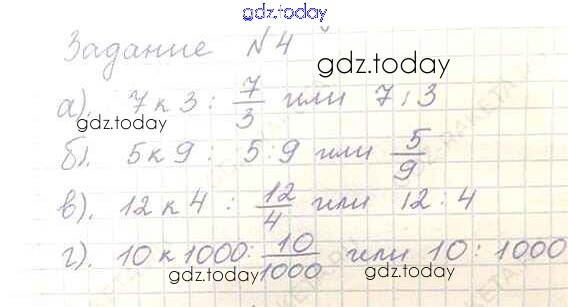 gdz.today
Задание N4
gdz.today
а). 7 к 3 : 7/3 или 7:3
gdz.today
б). 5 к 9 : 5:9 или 5/9
в). 12 к 4 : 12/4 или 12:4
г). 10 к 1000: 10/1000 или 10:1000
gdz.today gdz.today